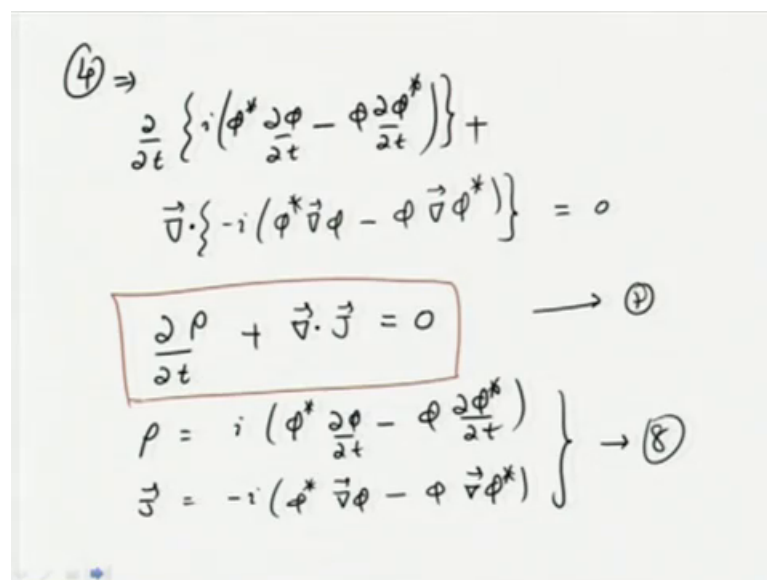 ④ ⇒
∂/∂t {i(φ* ∂φ/∂t − φ ∂φ*/∂t)} +
∇⃗·{-i(φ*∇⃗φ − φ∇⃗φ*)} = 0
∂ρ/∂t + ∇⃗·J⃗ = 0 ⟶ ⑦
ρ = i(φ* ∂φ/∂t − φ ∂φ*/∂t)
J⃗ = -i(φ* ∇⃗φ − φ ∇⃗φ*) } → ⑧